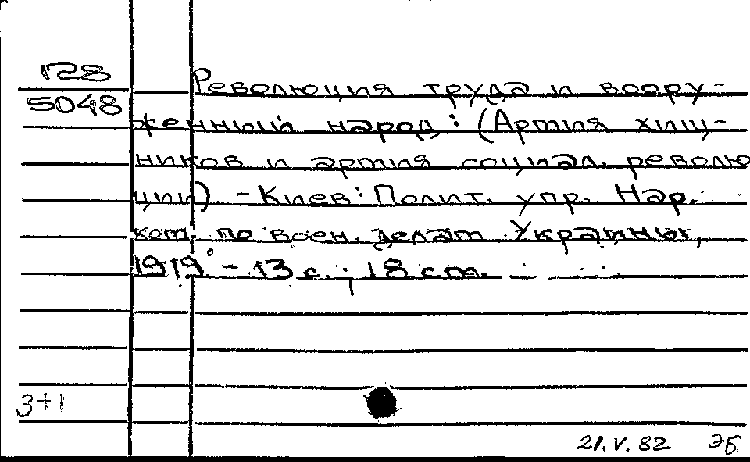 Г28
5048
Революция труда и воору-
женный народ: (Армия хищ-
ников и армия социал. револю
ции) - Киев: Полит. упр. Нар.
ком. по воен. делам Украины,
1919. - 13 с.; 18 см.
3+1
21.V.82 ЭБ